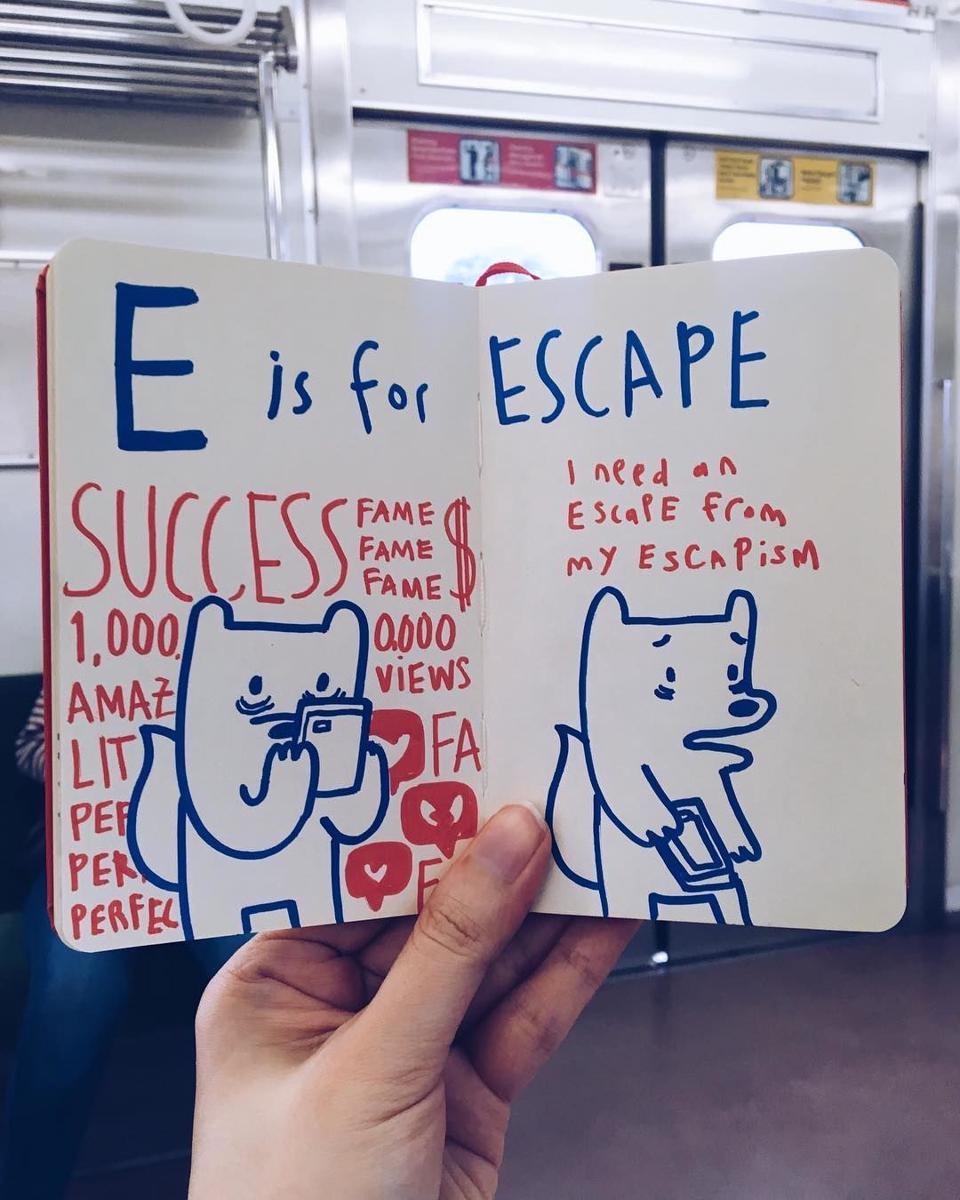 E is for ESCAPE
SUCCESS
FAME $
FAME
FAME
1,000,
0,000
VIEWS
AMAZ
LIT
FA
PER
PER
PERFEC
I need an
EscaPE from
my EscAPism